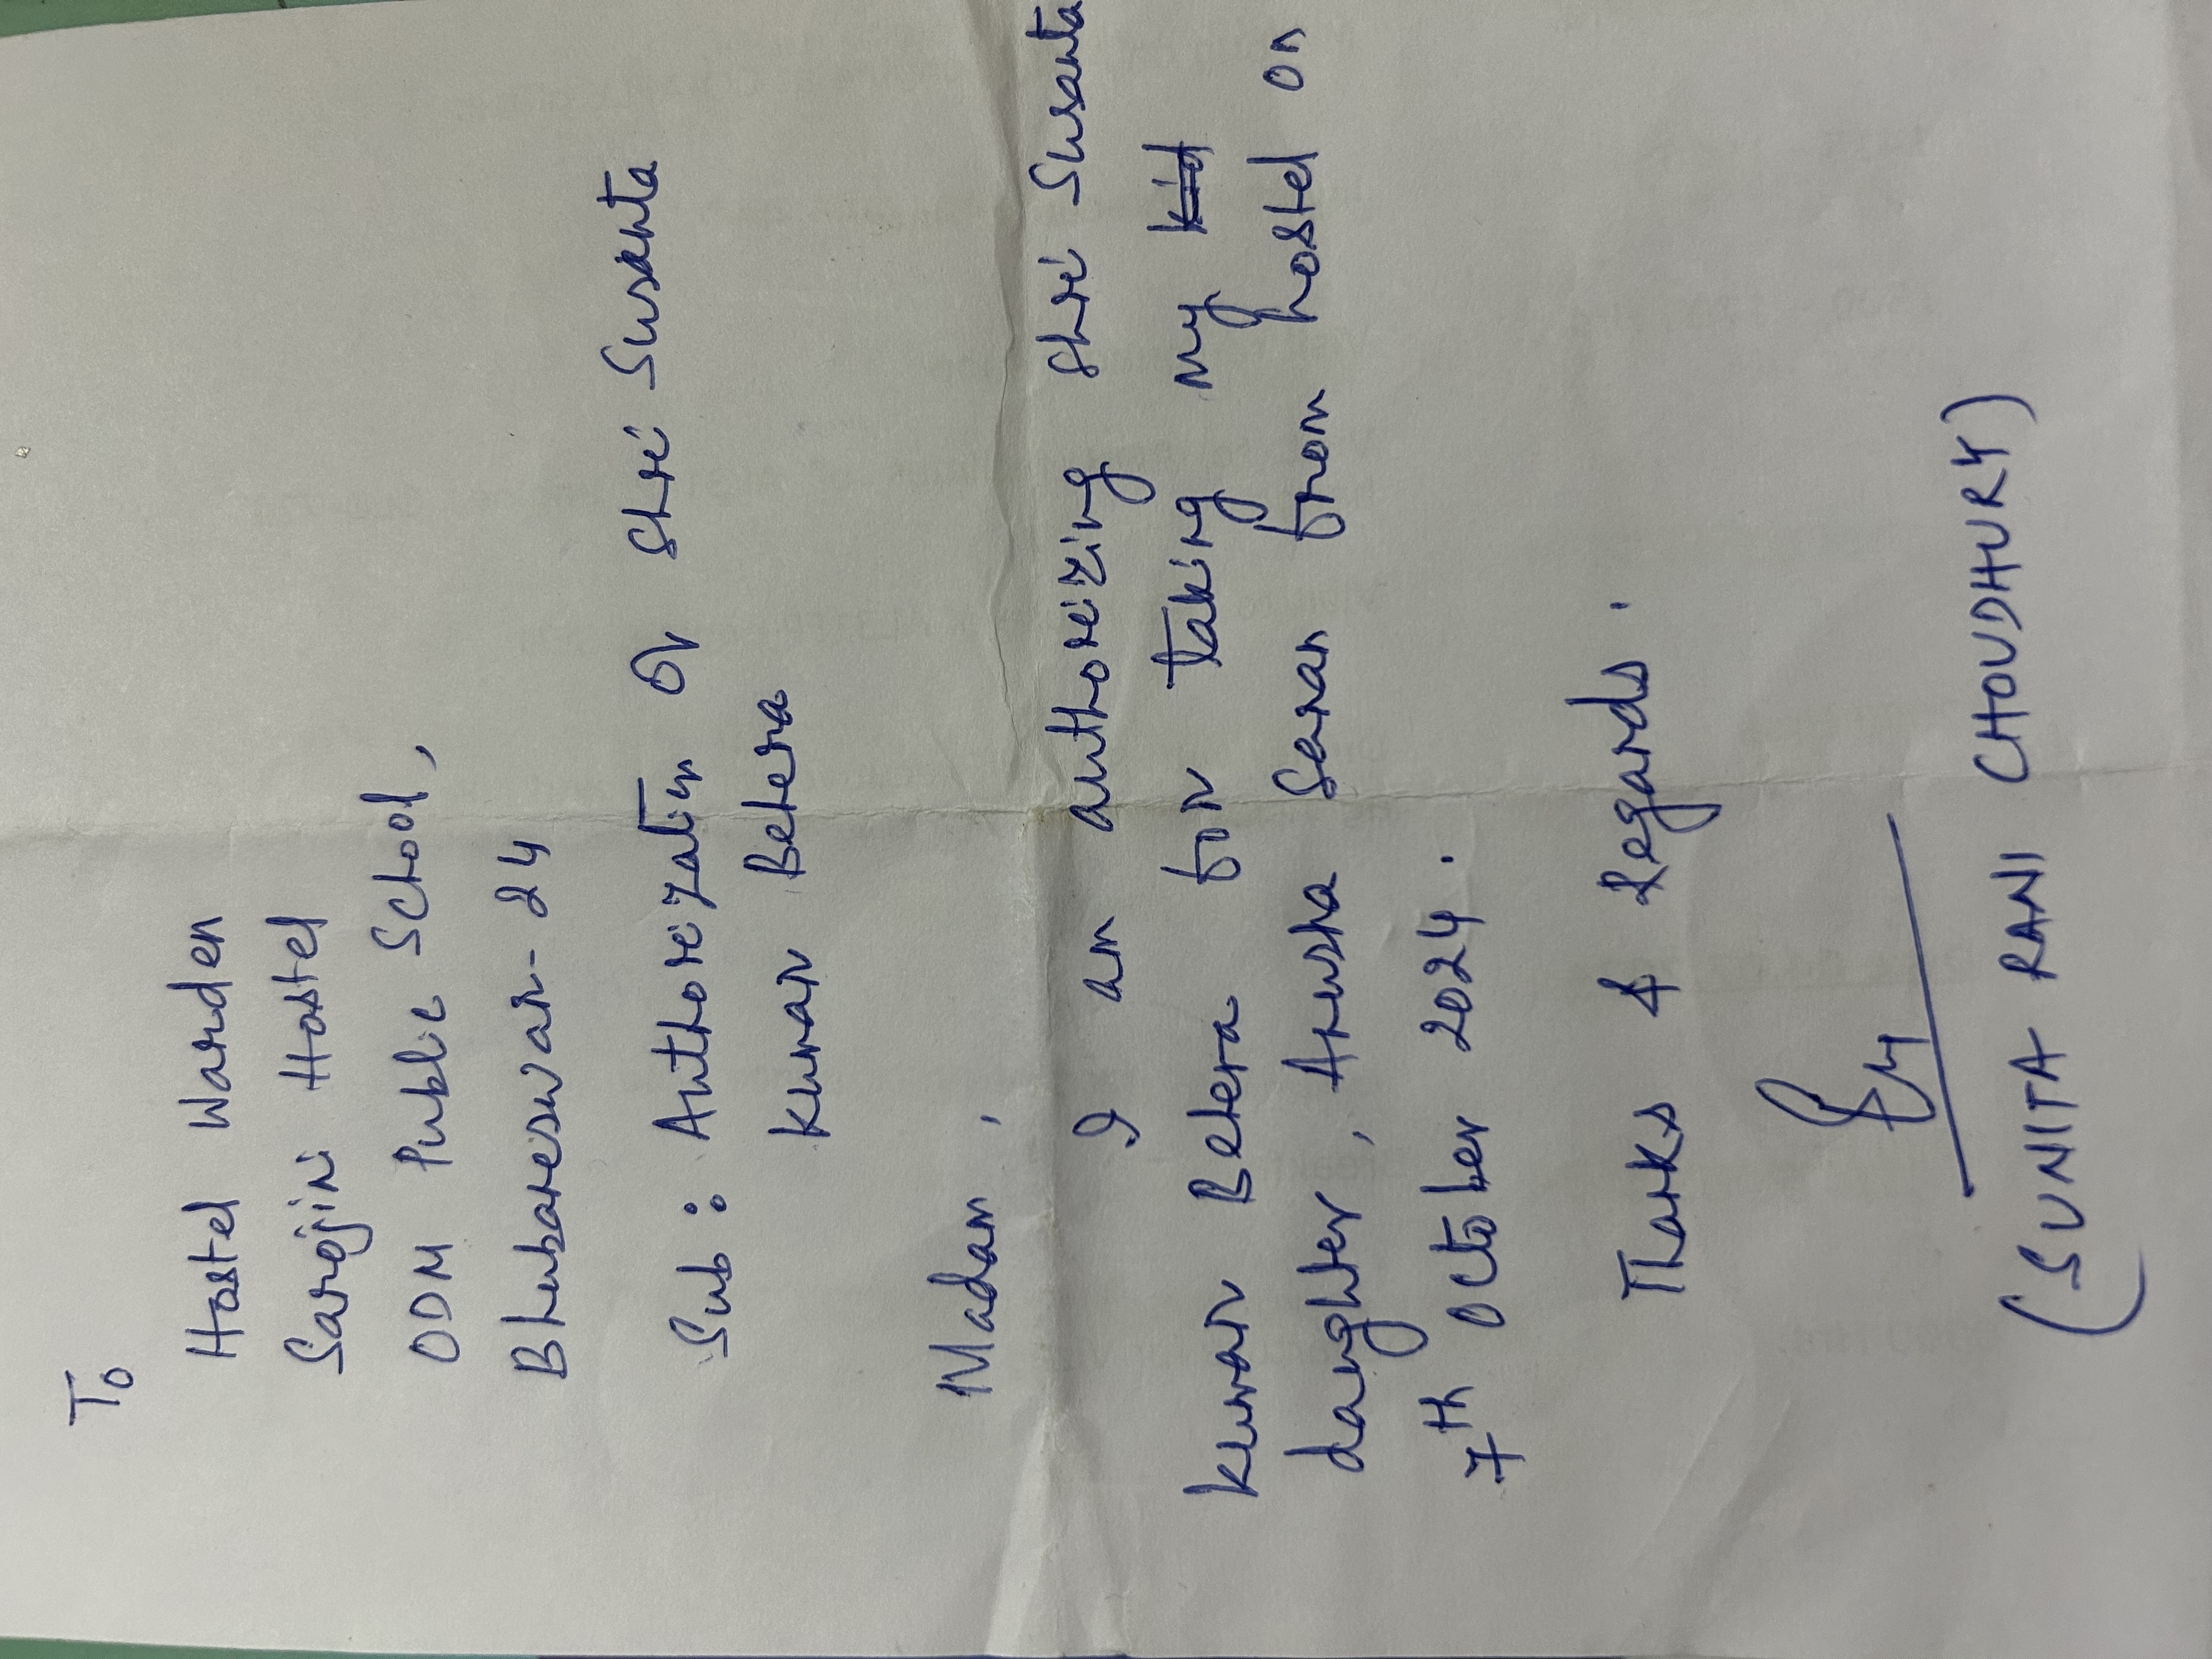 To
Hostel Warden
Sarojini Hostel
ODM Public School,
Bhubaneswar-24
Sub : Authorization of Shri Susanta
Kumar Behera
Madam,
I am authorizing Shri Susanta
Kumar Behera for taking my kid
daughter, Anusha Senan from hostel on
7th October 2024.
Thanks & Regards.
(SUNITA RANI CHOUDHURY)